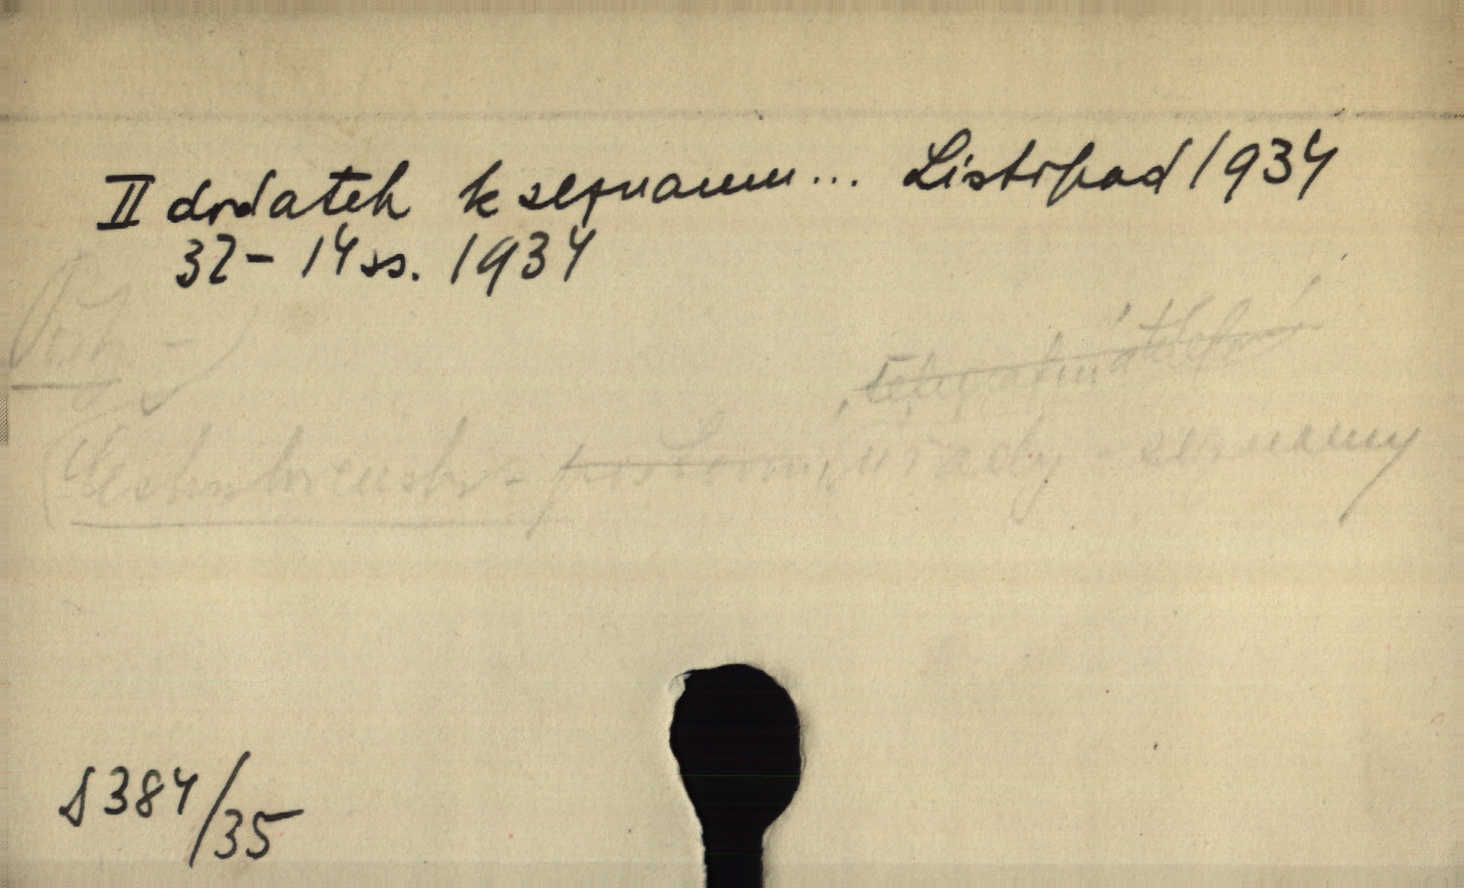 II dodatek k seznamu... Listopad 1934
32 - 14 ss. 1934
telegrafní a telefní
Československo - poštovní, úřady - seznamy
S 384/35